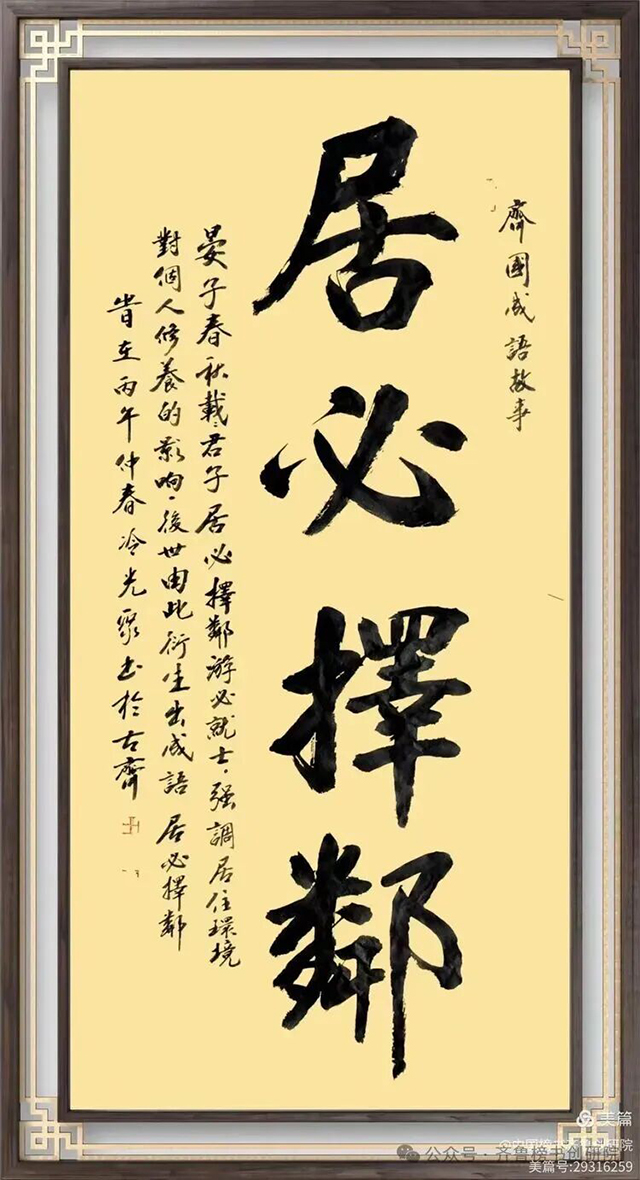 齊國成語故事
居必擇鄰
晏子春秋載君子居必擇鄰游必就士，强調居住環境
對個人修養的影响，後世由此衍生出成語 居必擇鄰
峕在丙午仲春冷光聚书於古齊
美篇
公众号·齐鲁榜书创研院
美篇号:29316259